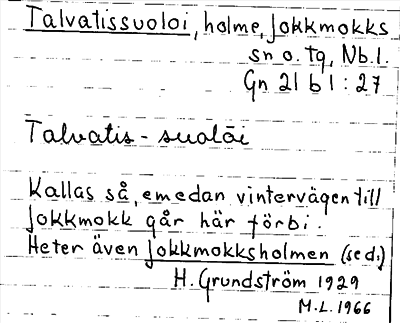 Talvatissuoloi, holme, Jokkmokks
sn o. tg, Nb.l.
Gn 21 b 1 : 27
Talvatis - suolåi
Kallas så, emedan vintervägen till
Jokkmokk går här förbi.
Heter även Jokkmokksholmen (se d.)
H. Grundström 1929
M.L. 1966